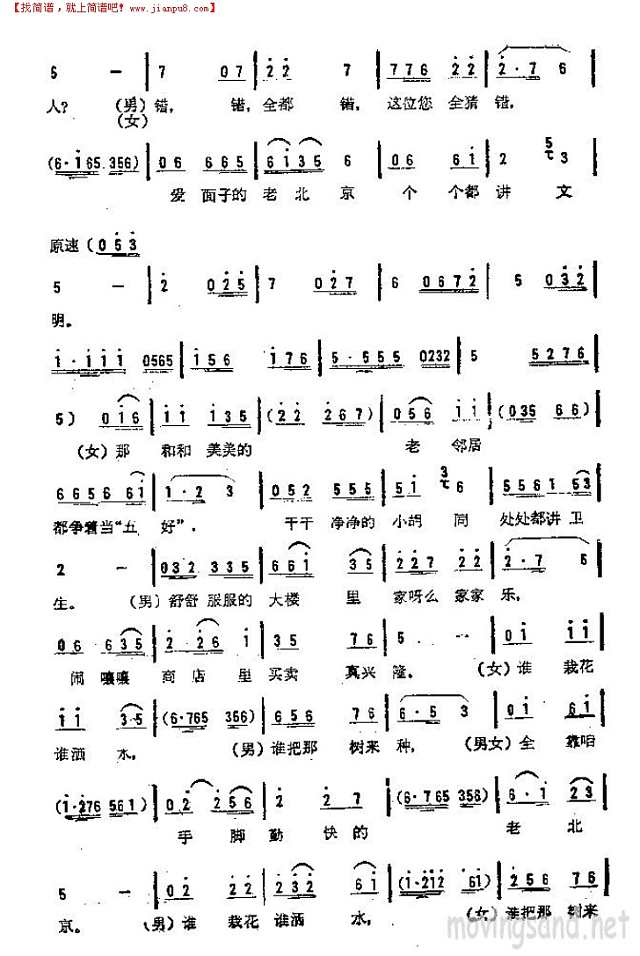 【找简谱,就上简谱吧! www.jianpu8.com】
5 — | 7 07 | 2 2 7 | 776 2 2 | 2·7 6
人? (男)错, 错,全都 错,这位您 全猜 错,
(女)
(6·165 356) | 06 665 | 6135 6 | 06 61 | 2 3
爱 面子的 老北 京 个 个都 讲 文
原速 (053
5 — | 2 025 | 7 027 | 6 0672 | 5 032
明。
1·111 0565 | 156 176 | 5·555 0232 | 5 5276
5) 016 | 11 135 | (22 267) | 056 11 | (035 66)
(女)那 和和 美美的 老 邻居
66656 61 | 1·2 3 | 052 555 | 51 6 | 55561 53
都争着当“五 好”, 干干 净净的 小胡 同 处处都讲 卫
2 — | 032 335 | 661 35 | 112 22 | 2·7 6
生。 (男)舒舒 服服的 大楼 里 家呀么 家家 乐,
06 635 | 226 1 35 | 76 5 | 01 11
闹 嚷嚷 商店 里买卖 真兴 隆。 (女)谁 栽花
11 35 | (6·765 356) | 656 76 | 6·5 3 | 02 61
谁洒 水, (男)谁把那 树来 种, (男女)全 靠咱
(1·276 561) | 02 256 | 2 2 | (6·765 356) | 6·1 23
手 脚勤 快的 老 北
5 — | 02 22 | 223 61 | (1·212 61) | 256 76
京。 (男)谁 栽花 谁洒 水, (女)谁把那 树来
movingsand.net